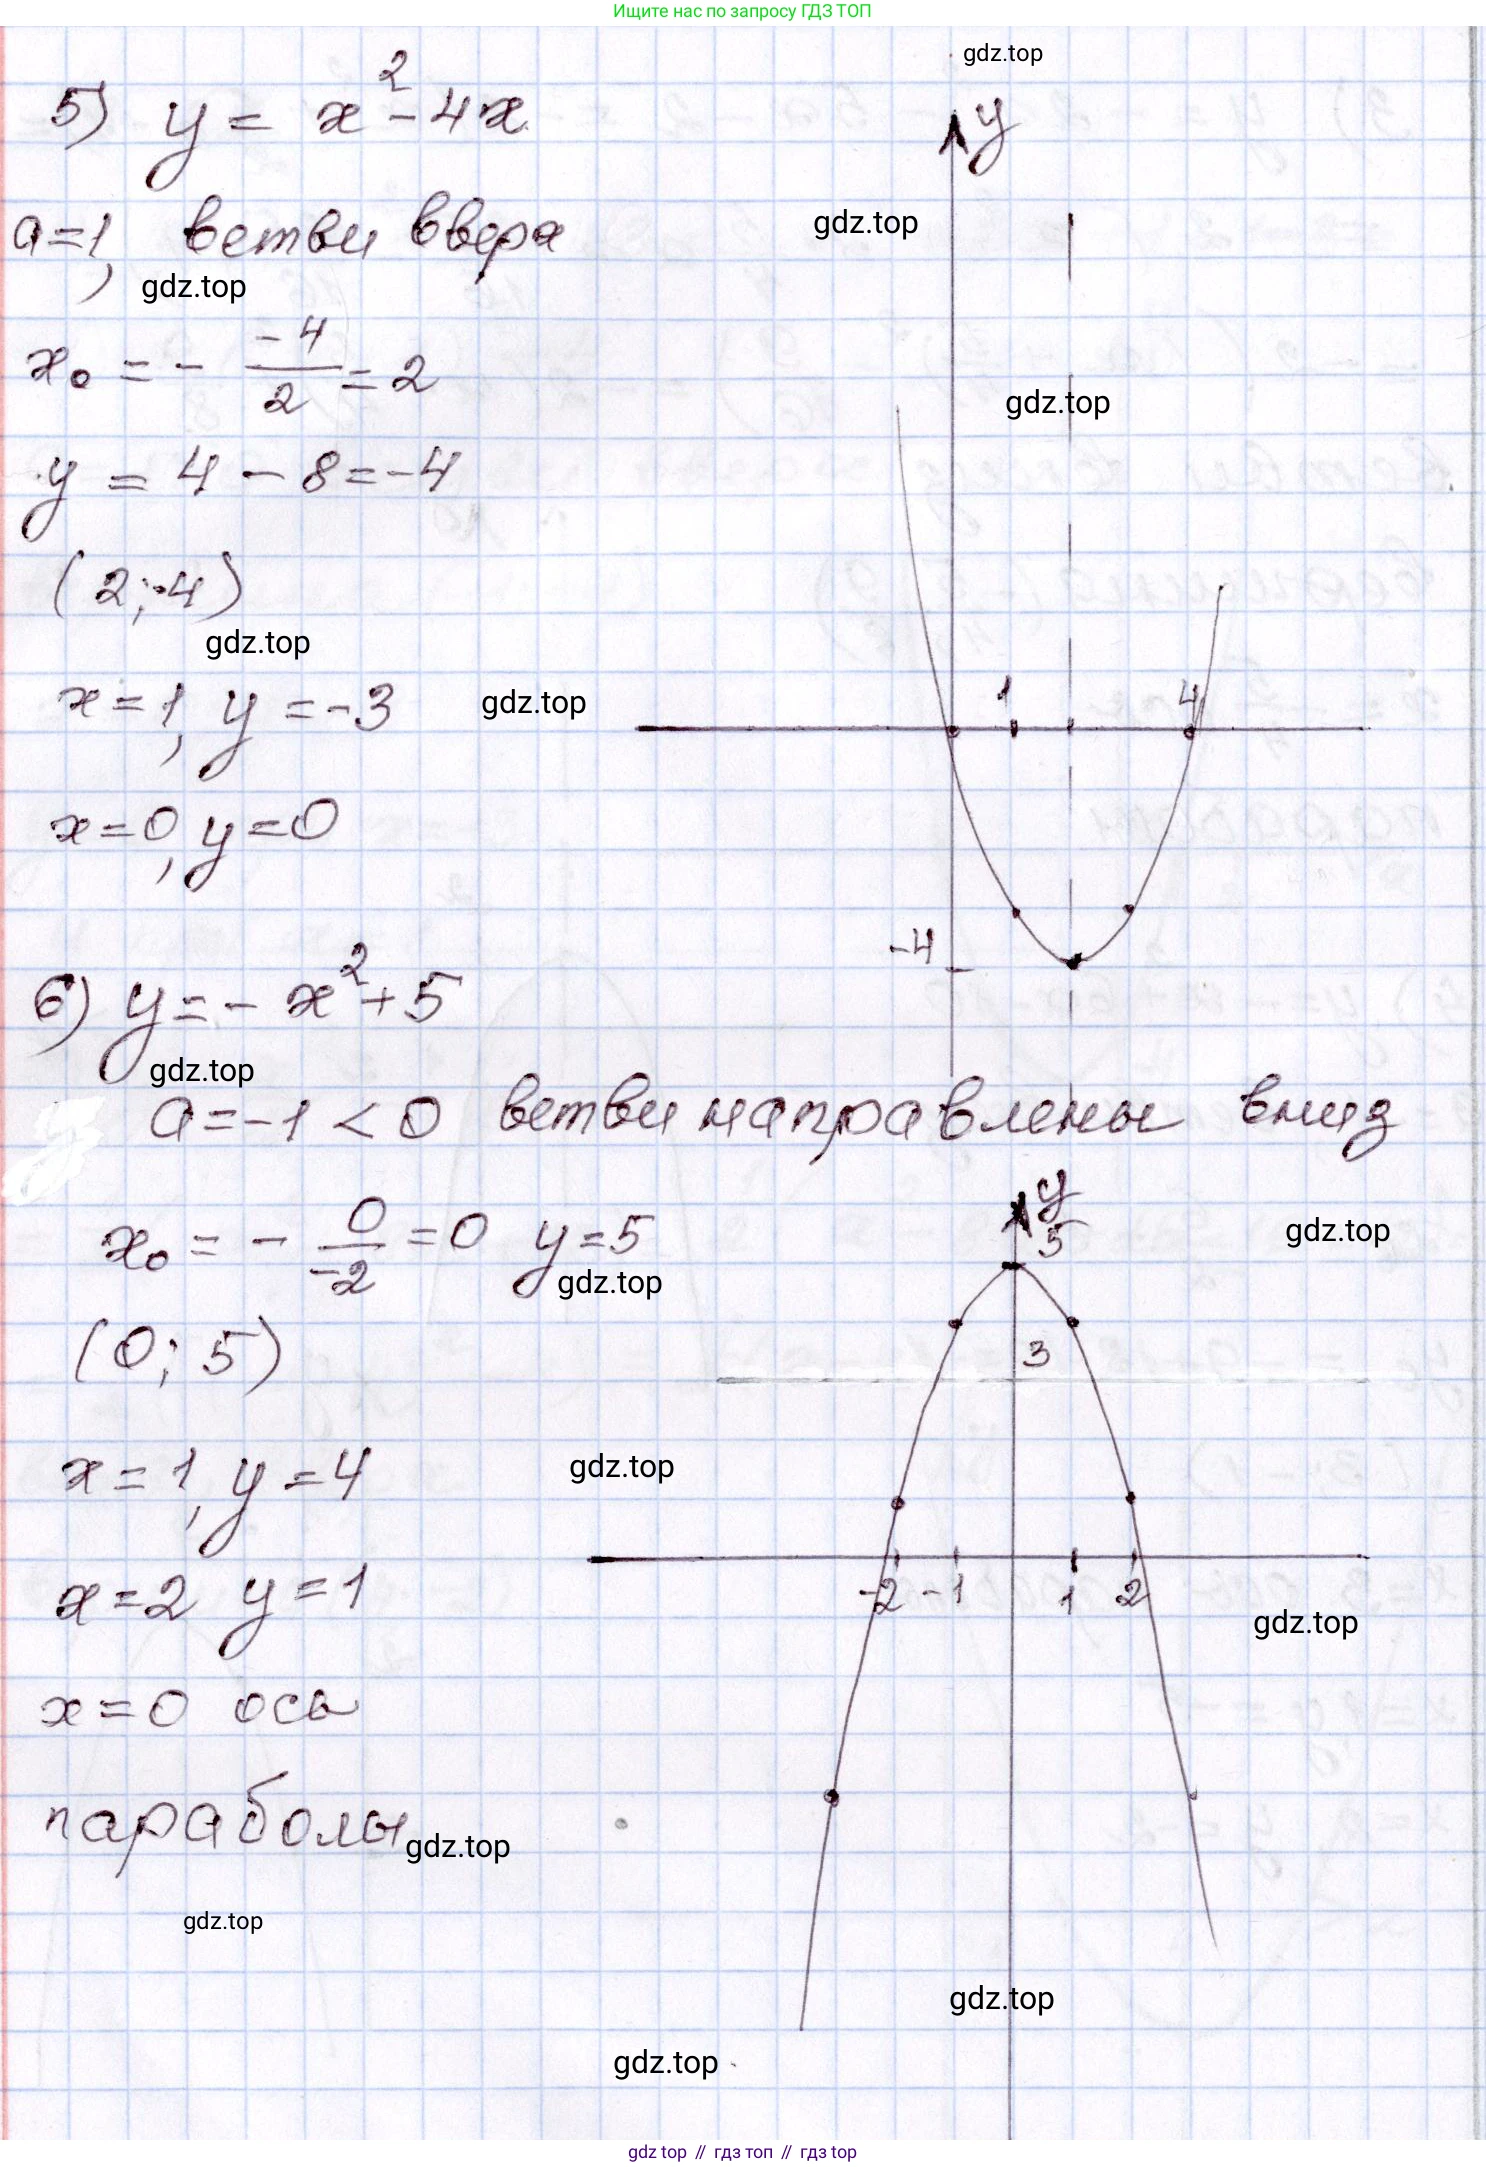 Ищите нас по запросу ГДЗ ТОП
gdz.top
5) y = x² - 4x
y
a=1, ветви вверх
gdz.top
gdz.top
x₀ = - -4/2 = 2
gdz.top
y = 4 - 8 = -4
(2; -4)
gdz.top
x = 1, y = -3
gdz.top
1
4
x = 0, y = 0
-4
6) y = - x² + 5
gdz.top
a = -1 < 0 ветви направлены вниз
y
5
gdz.top
x₀ = - 0/-2 = 0 y = 5
gdz.top
(0; 5)
3
x = 1, y = 4
gdz.top
-2 -1 1 2
x = 2 y = 1
gdz.top
x = 0 ось
параболы
gdz.top
gdz.top
gdz.top
gdz.top
gdz top // гдз топ // gdz top